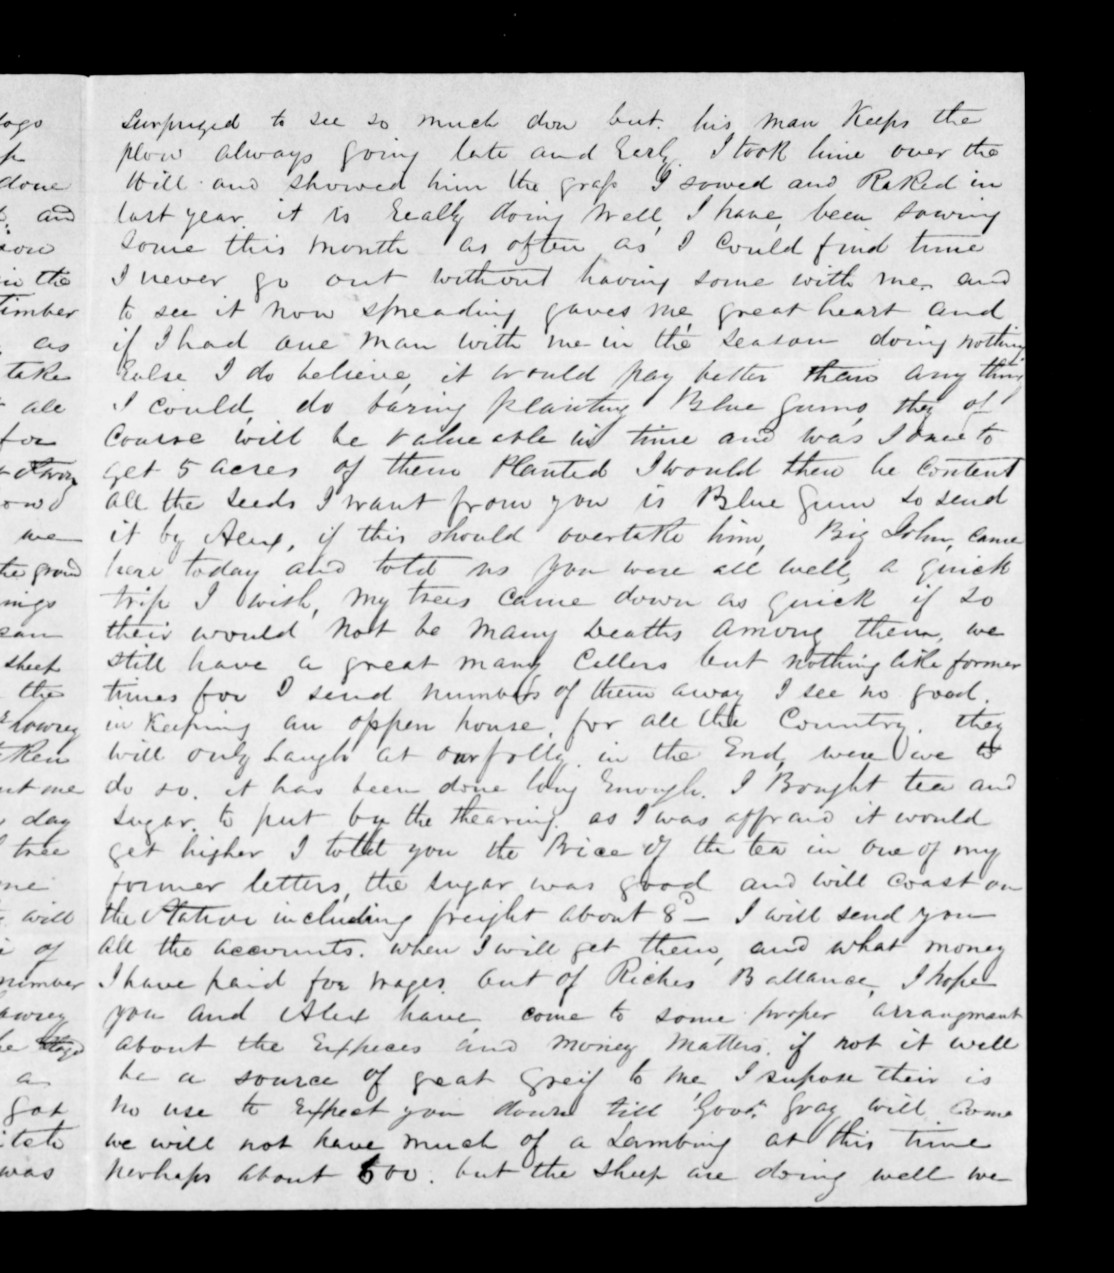 Surprized to see so much don but his man Keeps the
plow always going late and Eerly I took hime over the
Hill and showed him the grass I sowed and Raked in
last year. it is Really doing Well, I have, been sowing
some this month as often as I could find time
I never go out without having some with me, and
to see it now spreading gaves me great heart and
if I had one man with me in the season doing nothing
Ealse I do believe, it would pay better than any thing
I could, do baring planting Blue gums, they of
Course will be valueable in time and was I to
get 5 acres of them Planted I would then be Content
all the seeds I want from you is Blue Gum so send
it by Alex, if this should overtake him, Big John, came
here today and told us you were all well, a quick
trip I wish, my trees came down as quick if so
their would not be many Deaths among them, we
still have a great many Callers but nothing like former
times for I send numbers of them away I see no good
in Keeping an oppen house, for all the Country. they
will only Laugh at our folly in the End, were we to
do so. it has been done long Enough. I Bought tea and
sugar. to put by the shearing. as I was affraid it would
get higher I told you the Price of the tea in one of my
former letters, the sugar was good and will coast on
the Station including freight about 8D— I will send you
all the accounts. when I will get them, and what money
I have paid for wages. out of Riches Ballance, I hope
you and Alex have, come to some proper arrangment
about the Expeces and money Matters. if not it will
be a source of geat Greif to me, I supose their is
no use to Expect you down till Govr. Gray will Come
we will not have much of a Lambing at this time
perhaps about 500. but the sheep are doing well we
dago
done
and
in the
Timber
as
take
all
for
we
the ground
sheep
the
day
tree
will
of
number
a
got
was